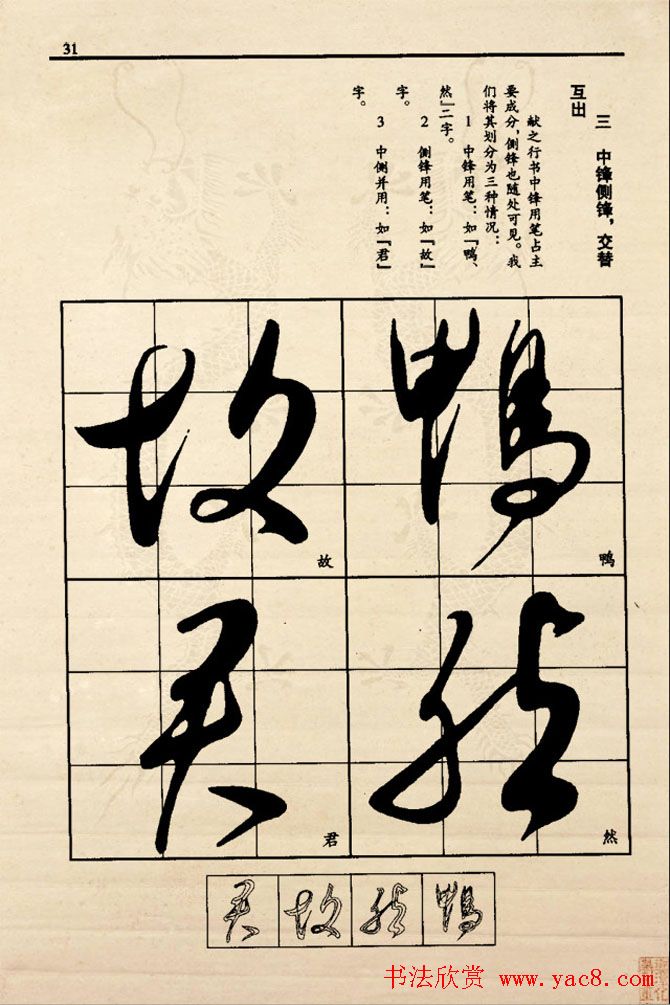 31
三　中锋侧锋，交替
互出
献之行书中锋用笔占主
要成分，侧锋也随处可见。我
们将其划分为三种情况：
1　中锋用笔：如『鸭、
然』二字。
2　侧锋用笔：如『故』
字。
3　中侧并用：如『君』
字。
鸭
鸭
故
故
然
然
君
君
君 故 然 鸭
书法欣赏 www.yac8.com